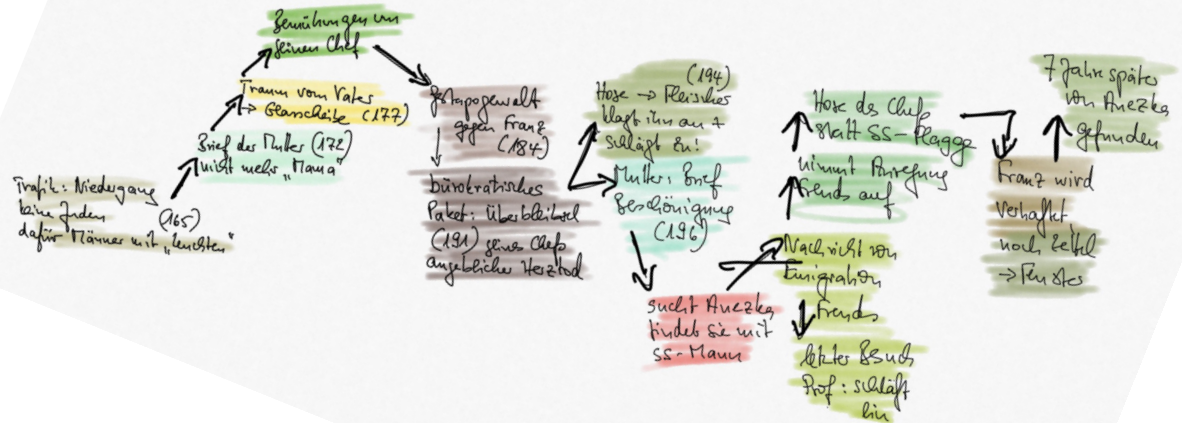 Trafik: Niedergang
keine Juden (165)
dafür Männer mit „leuchten"
Brief der Mutter (172)
nicht mehr „Mama"
Traum vom Vater
→ Glasscheibe (177)
Bemühungen um
seinen Chef
Gestapogewalt
gegen Franz
(184)
bürokratisches
Paket: Überbleibsel
(191) seines Chefs
angeblicher Herztod
(194)
Hose → Fleischer
klagt ihn an +
schlägt zu!
Mutter: Brief
Beschönigung
(196)
sucht Anezka,
findet sie mit
SS-Mann
Nachricht von
Emigration
Freuds
letzter Besuch
Prof: schläft
hin
nimmt Anregung
Freuds auf
Hose des Chefs
statt SS-Flagge
Franz wird
verhaftet,
noch Zettel
→ Fenster
7 Jahre später
von Anezka
gefunden